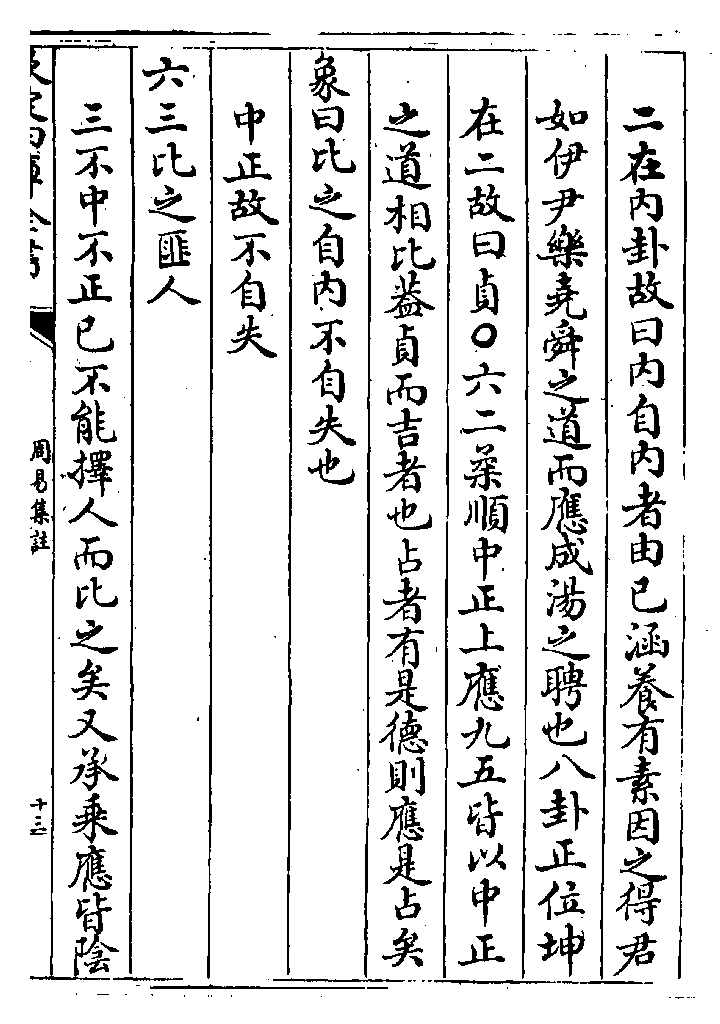 二在内卦故曰内自内者由已涵養有素因之得君
如伊尹樂堯舜之道而應成湯之聘也八卦正位坤
在二故曰貞○六二柔順中正上應九五皆以中正
之道相比葢貞而吉者也占者有是德則應是占矣
象曰比之自内不自失也
中正故不自失
六三比之匪人
三不中不正已不能擇人而比之矣又承乘應皆陰
欽定四庫全書
周易集註
十三